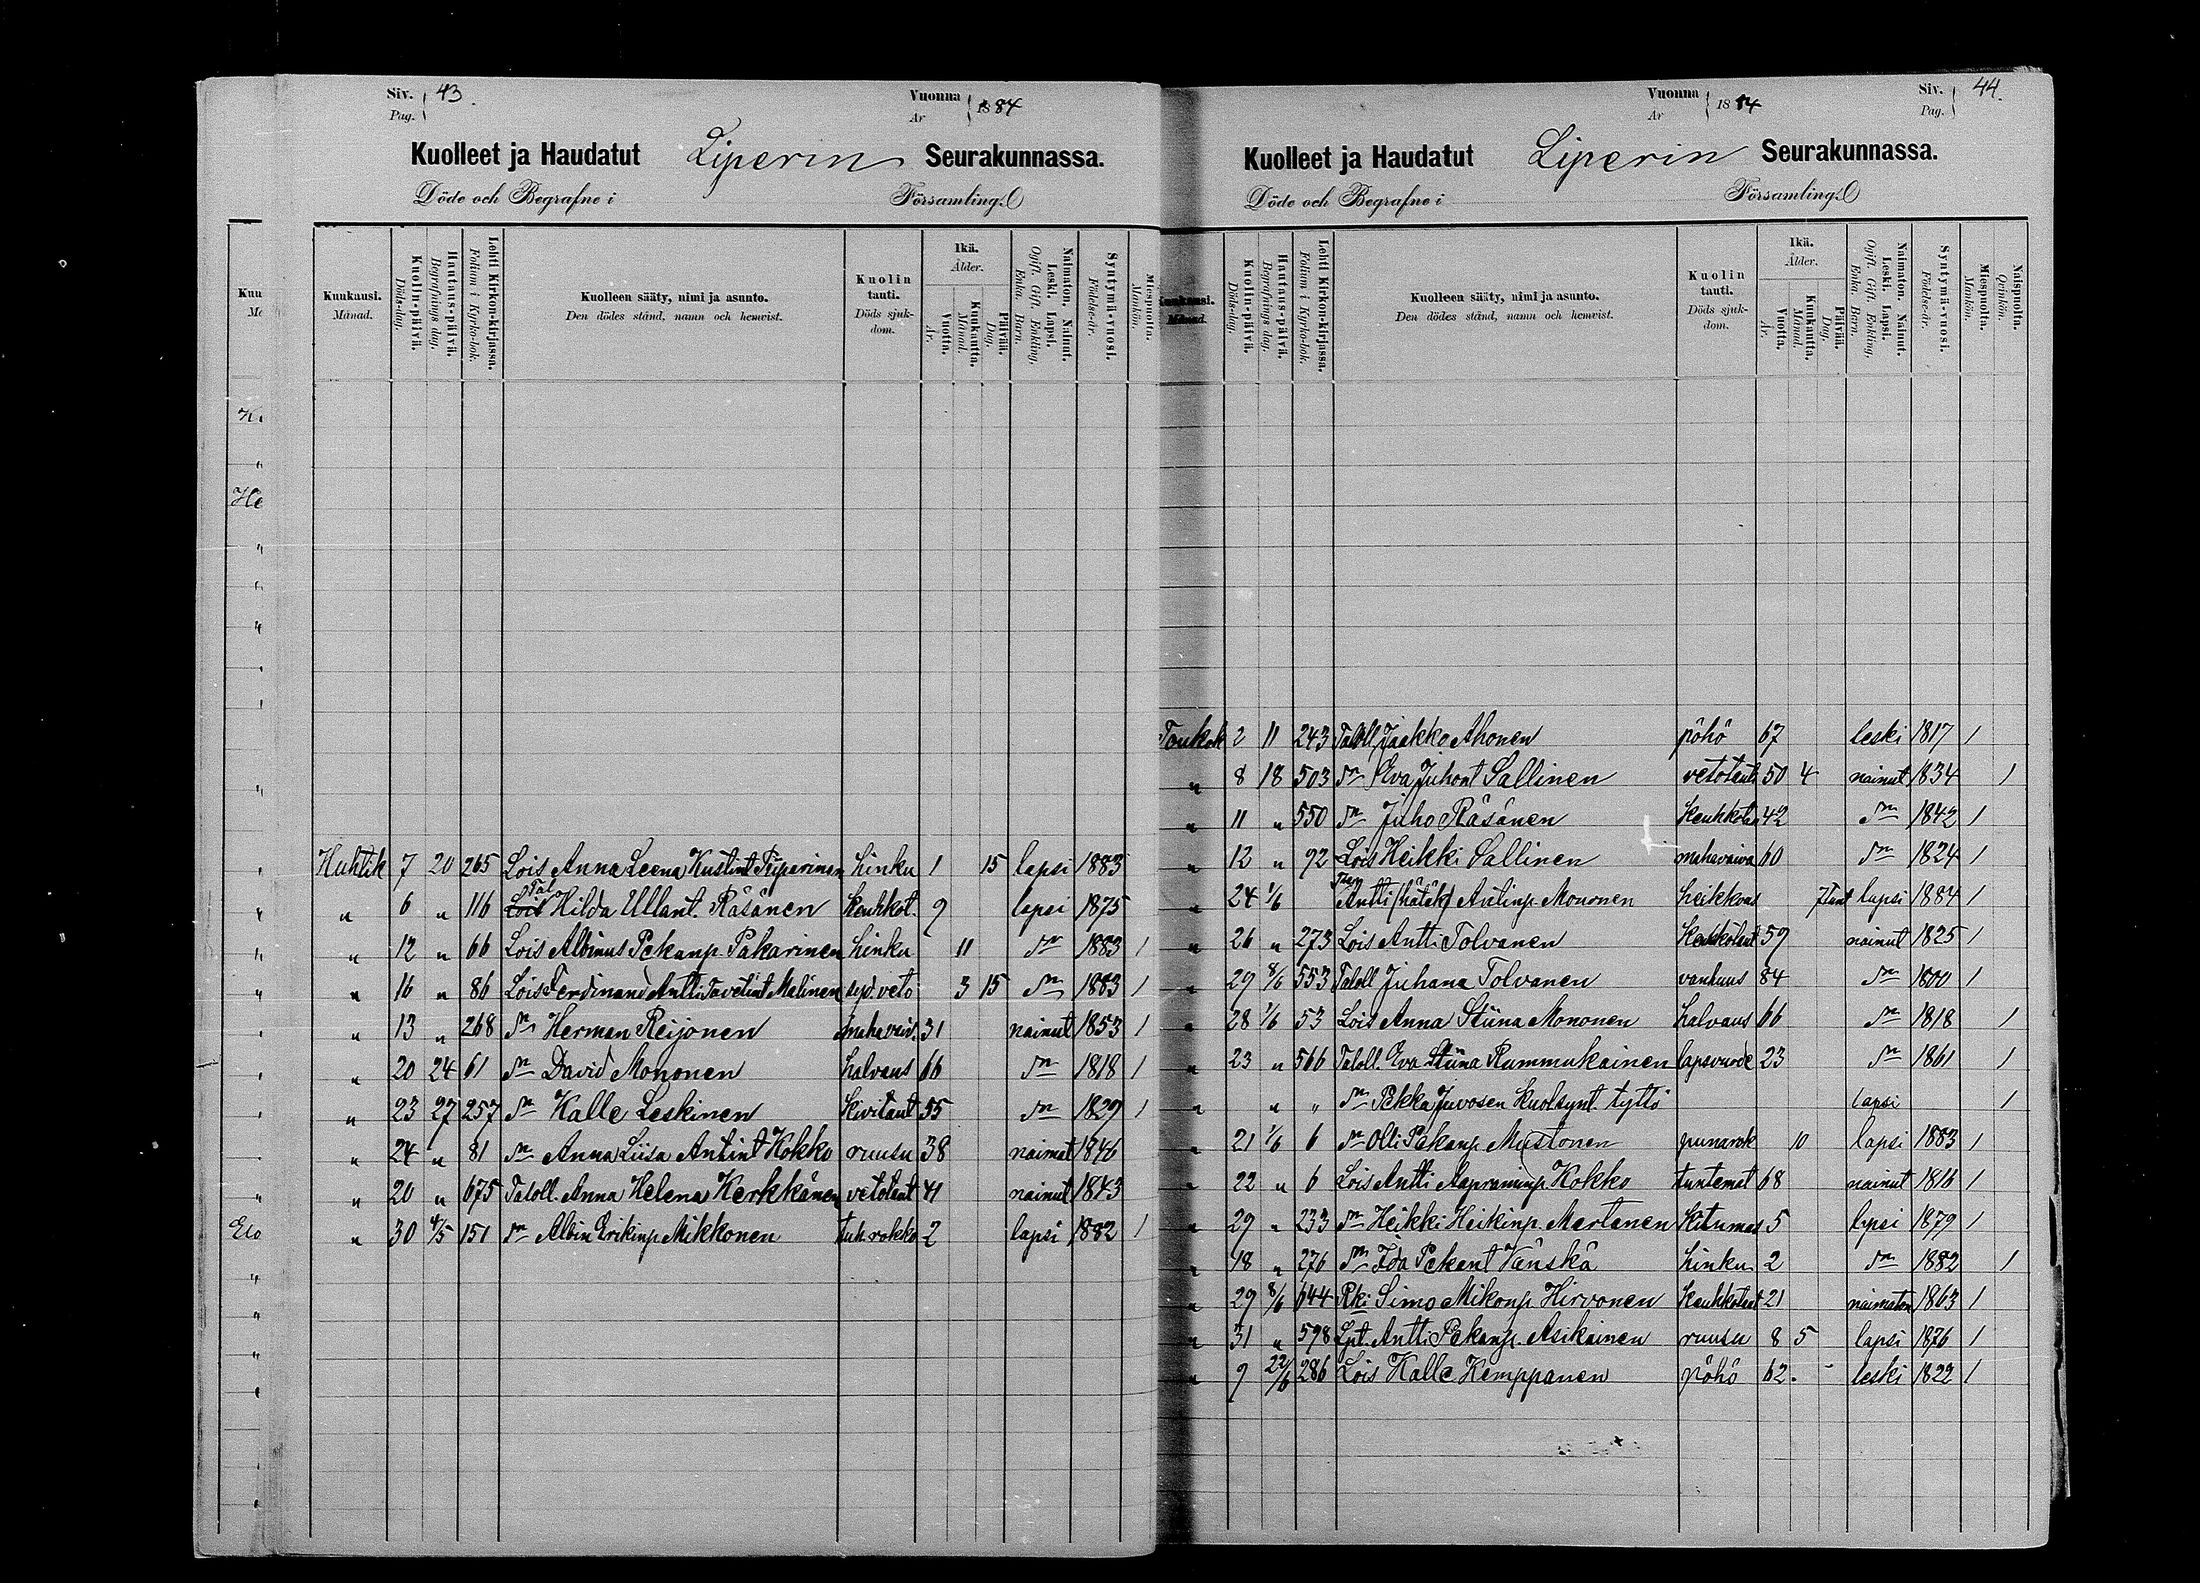 Siv. 43.
Pag.
Vuonna 1884
År
Kuolleet ja Haudatut Liperin Seurakunnassa.
Döde och Begrafne i Församling.
Kuukausi. Månad.
Kuolin-päivä. Döds-dag.
Hautaus-päivä. Begrafnings dag.
Lehti Kirkon-kirjassa. Folium i Kyrko-bok.
Kuolleen sääty, nimi ja asunto. Den dödes stånd, namn och hemvist.
Kuolin tauti. Döds sjuk-dom.
Ikä. Ålder.
Vuotta. År.
Kuukautta. Månad.
Päivää. Dag.
Naimaton. Nainut. Leski. Lapsi. Ogift. Gift. Enkling. Enka. Barn.
Syntymä-vuosi. Födelse-år.
Miespuolta. Mankön.
Huhtik 7 20 265 Lois Anna Leena Kustint Piiparinen hinku 1 15 lapsi 1883
" 6 " 116 Lois Tal Hilda Ullant. Räsänen keuhkot. 9 lapsi 1875
" 12 " 66 Lois Albinus Pekanp. Pakarinen hinku 11 dn 1883 1
" 16 " 86 Lois Ferdinand Antti Tavetint Malinen syd. veto 3 15 dn 1883 1
" 13 " 268 dn Herman Reijonen mahavaiv. 31 nainut 1853 1
" 20 24 61 dn David Mononen halvaus 66 dn 1818 1
" 23 27 257 dn Kalle Leskinen kivitaut 55 dn 1829 1
" 24 " 81 dn Anna Liisa Antint Kokko ruusu 38 naimat 1846
" 20 " 675 Taloll. Anna Helena Kerkkänen vetotaut 41 nainut 1843
" 30 4/5 151 dn Albin Erikinp Mikkonen tuh. rokko 2 lapsi 1882 1
Vuonna 1884
År
Siv. 44.
Pag.
Kuolleet ja Haudatut Liperin Seurakunnassa.
Döde och Begrafne i Församling.
Kuukausi. Månad.
Kuolin-päivä. Döds-dag.
Hautaus-päivä. Begrafnings dag.
Lehti Kirkon-kirjassa. Folium i Kyrko-bok.
Kuolleen sääty, nimi ja asunto. Den dödes stånd, namn och hemvist.
Kuolin tauti. Döds sjuk-dom.
Ikä. Ålder.
Vuotta. År.
Kuukautta. Månad.
Päivää. Dag.
Naimaton. Nainut. Leski. Lapsi. Ogift. Gift. Enkling. Enka. Barn.
Syntymä-vuosi. Födelse-år.
Miespuolta. Mankön.
Naispuolta. Qvinkön.
Toukok 2 11 243 Taloll Jaakko Ahonen pöhö 67 leski 1817 1
" 8 18 503 dn Eva Juhont Sallinen vetotaut 50 4 nainut 1834 1
" 11 " 550 dn Juho Räsänen keuhkotau 42 dn 1842 1
" 12 " 92 Lois Heikki Sallinen mahavaiva 60 dn 1824 1
" 24 1/6 Antti (hätäk) Antinp Mononen heikkous lapsi 1884 1
" 26 " 273 Lois Antti Tolvanen keuhkotaut 59 nainut 1825 1
" 29 8/6 553 Taloll Juhana Tolvanen vanhuus 84 dn 1800 1
" 28 1/6 53 Lois Anna Stiina Mononen halvaus 66 dn 1818 1
" 23 " 566 Taloll. Eva Stiina Rummukainen lapsvuode 23 dn 1861 1
" " " dn Pekka Juvosen kuolsynt tyttö lapsi 1
" 21 1/6 6 dn Olli Pekanp Mustonen punarok 10 lapsi 1883 1
" 22 " 6 Lois Antti Aapraminp Kokko tuntemat 68 nainut 1816 1
" 29 " 233 dn Heikki Heikinp Martanen kitumus 5 lapsi 1879 1
" 18 " 276 dn Ida Pekant Vänskä hinku 2 dn 1882 1
" 29 8/6 644 Rki Simo Mikonp Hirvonen keuhkotaut 21 naimaton 1863 1
" 31 " 598 Lpt. Antti Pekanp. Asikainen ruusu 8 5 lapsi 1876 1
" 9 22/6 286 Lois Kalle Kemppanen pöhö 62. leski 1822 1